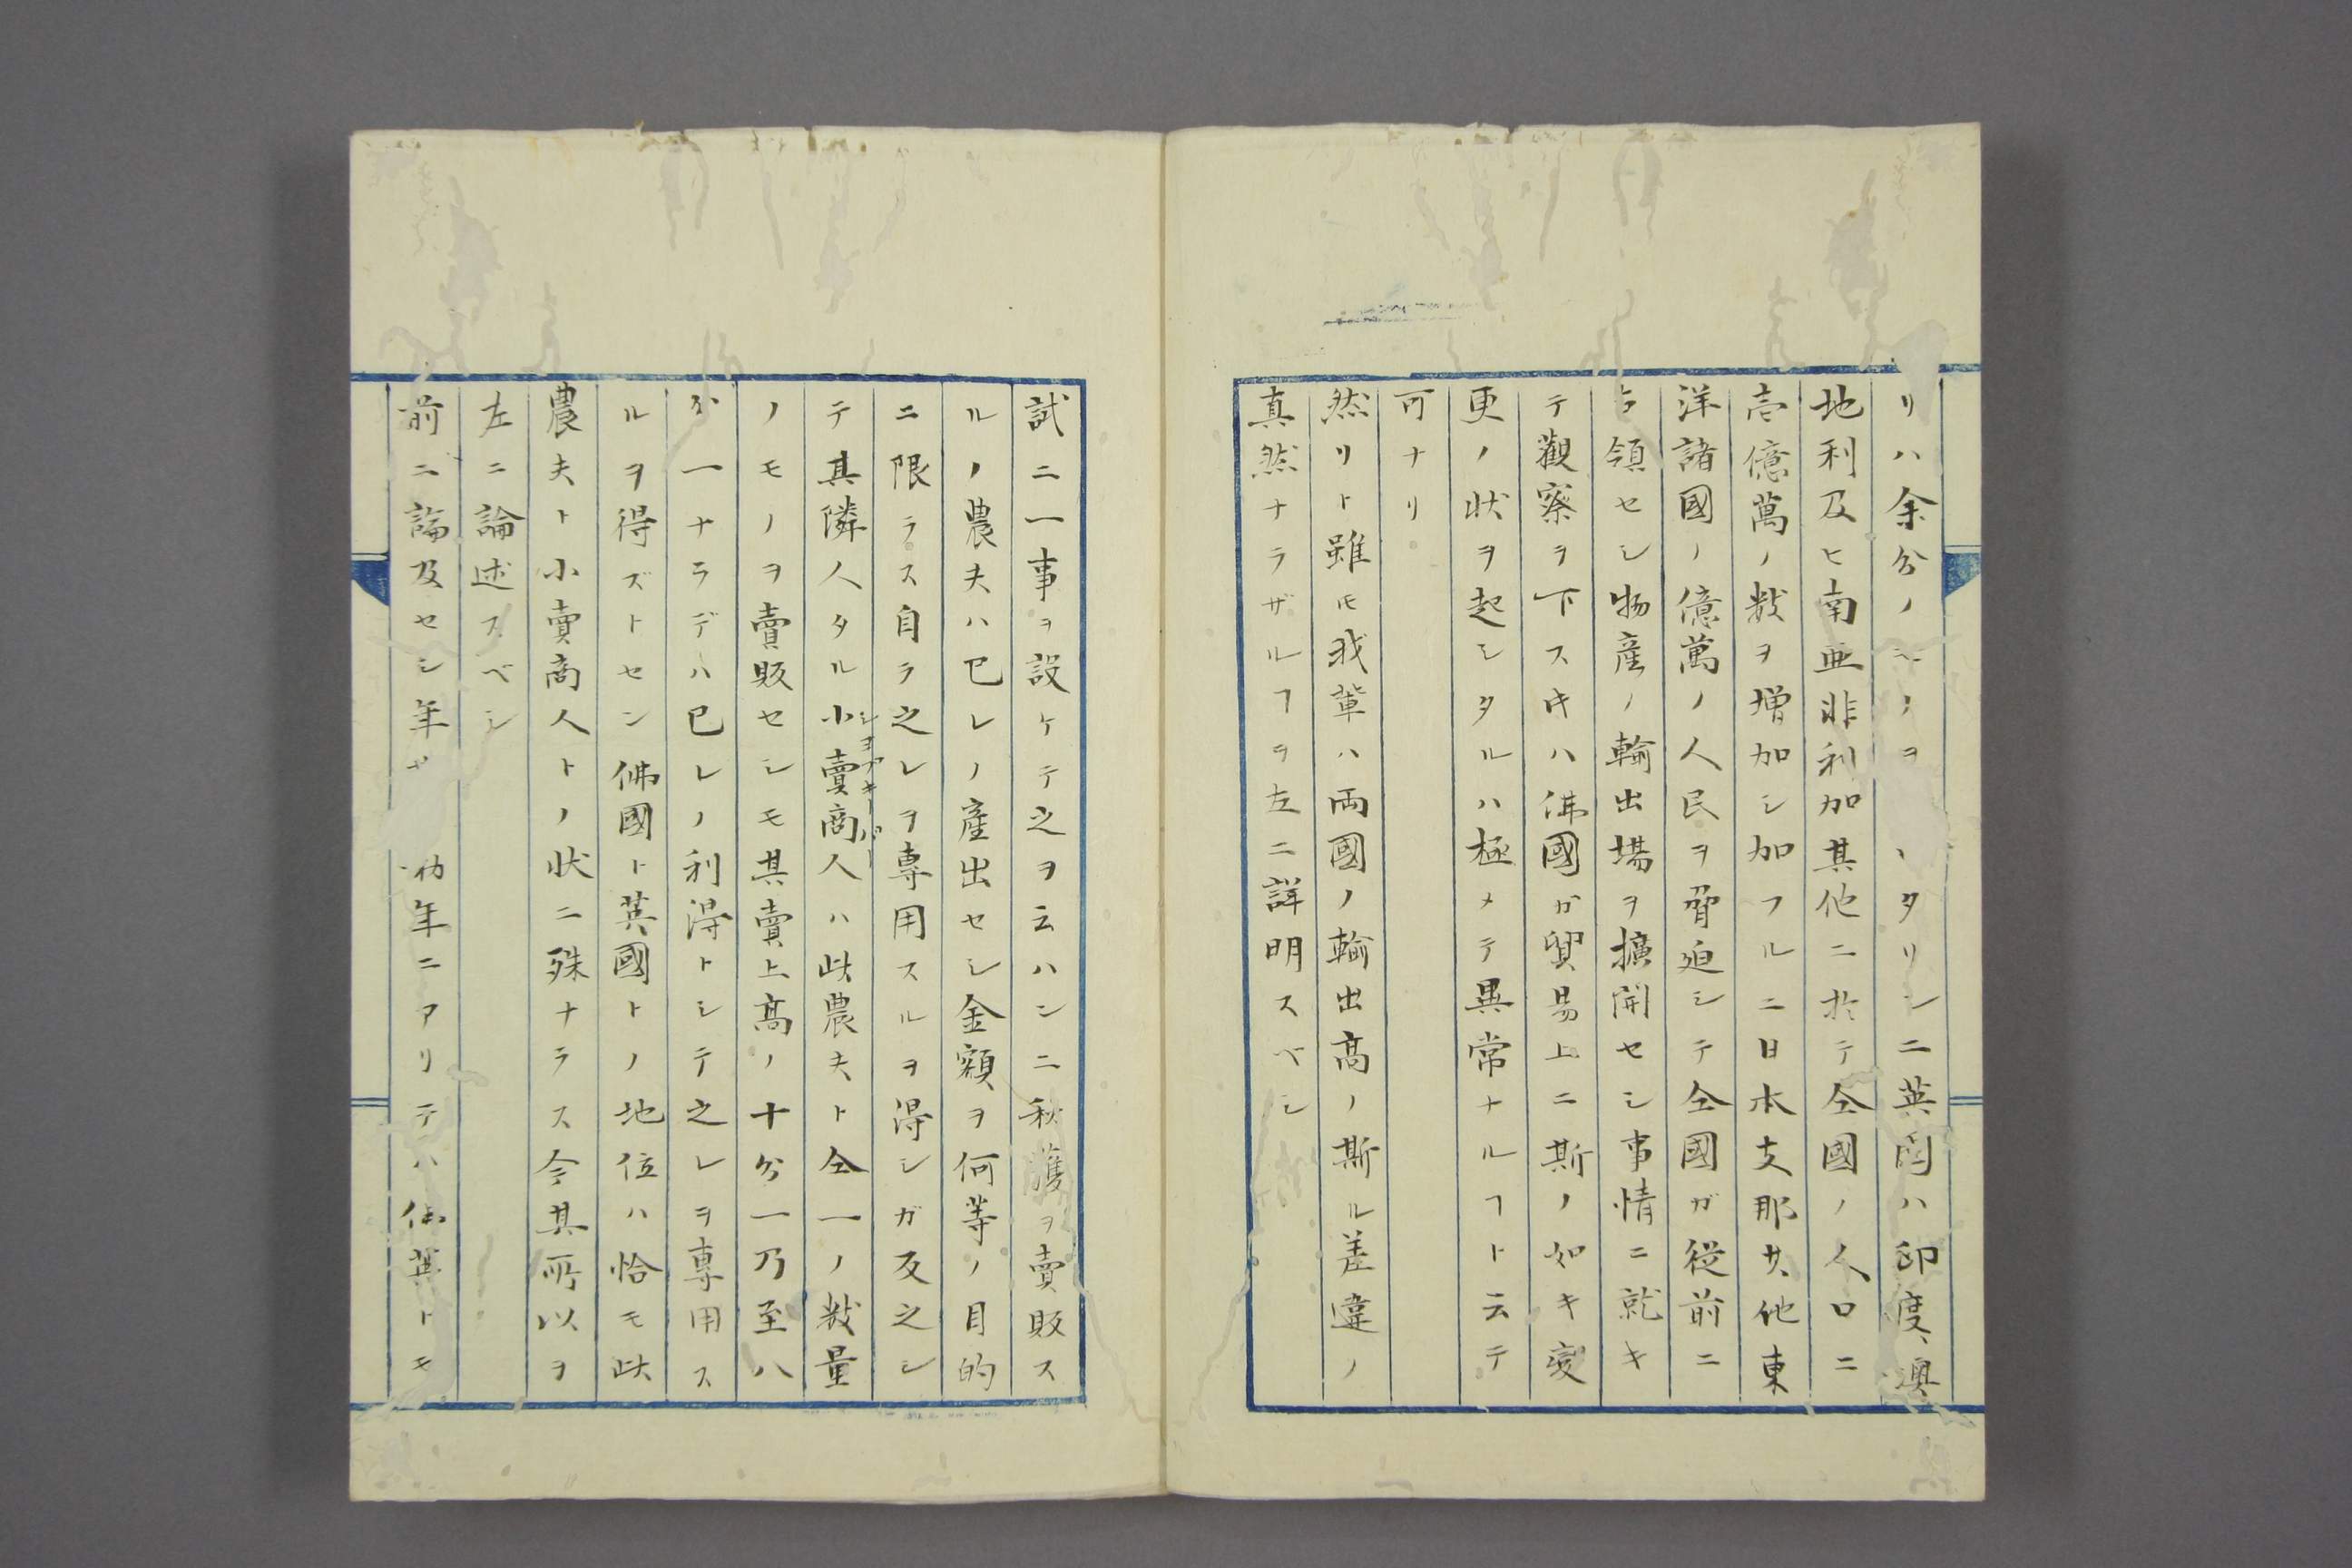 リハ余分ノ ヲ タリシニ英閣ハ印度、澳
地利及ヒ南亜非利加其他ニ於テ仝國ノ人口ニ
壱億萬ノ数ヲ増加シ加フルニ日本支那其他東
洋諸國ノ億萬ノ人民ヲ脅迫シテ仝國ガ従前ニ
領セシ物産ノ輸出場ヲ擴開セシ事情ニ就キ
テ觀察ヲ下スキハ佛國ガ貿易上ニ斯ノ如キ変
更ノ状ヲ起シタルハ極メテ異常ナルヿト云テ
可ナリ
然リト雖モ我輩ハ両國ノ輸出高ノ斯ル差違ノ
真然ナラザルヿヲ左ニ詳明スベシ
試ニ一事ヲ設ケテ之ヲ云ハンニ秋獲ヲ賣販ス
ルノ農夫ハ已レノ産出セシ金額ヲ何等ノ目的
ニ限ラス自ラ之レヲ専用スルヲ得シガ反之シ
テ其隣人タル小賣商人ハ此農夫ト仝一ノ数量
ノモノヲ賣販セシモ其賣上高ノ十分一乃至八
分一ナラデハ已レノ利得トシテ之レヲ専用ス
ルヲ得ズトセン佛國ト英國トノ地位ハ恰モ此
農夫ト小賣商人トノ状ニ殊ナラス今其所以ヲ
左ニ論述スベシ
前ニ論及セシ年 初年ニアリテハ佛英トモ